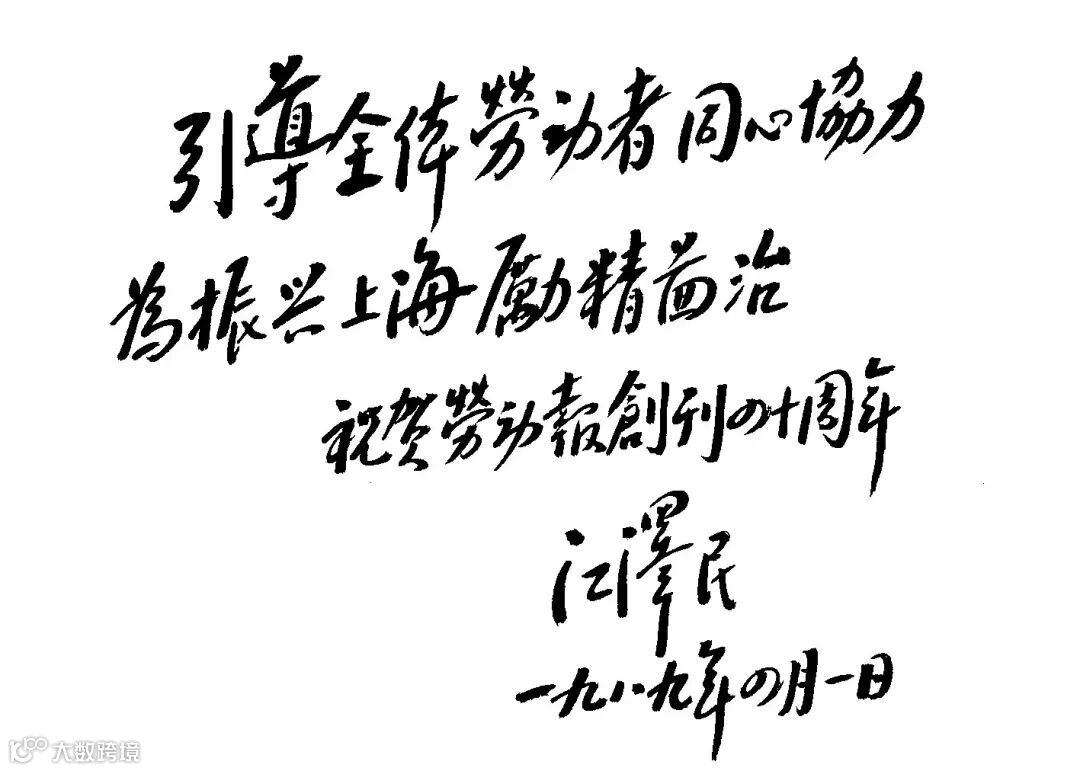 引導全体勞动者同心協力
為振兴上海勵精啚治
祝贺勞动報創刊四十周年
江澤民
一九八九年四月一日
大数跨境